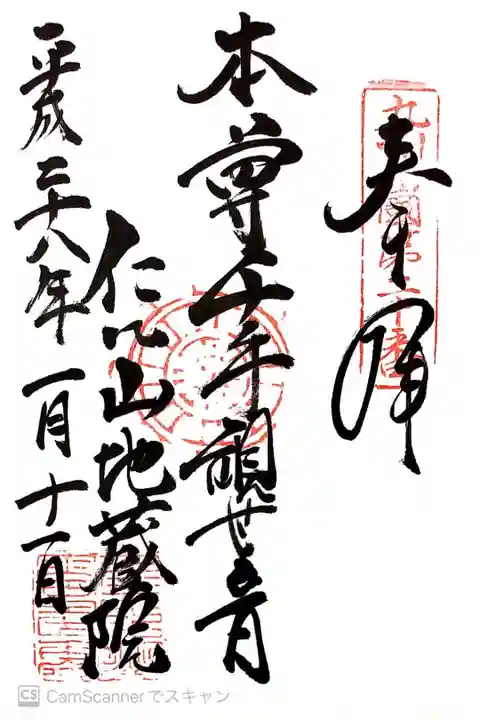 奉拝
本尊千手観世音
仁比山地蔵院
平成二十八年一月十一日
CamScannerでスキャン